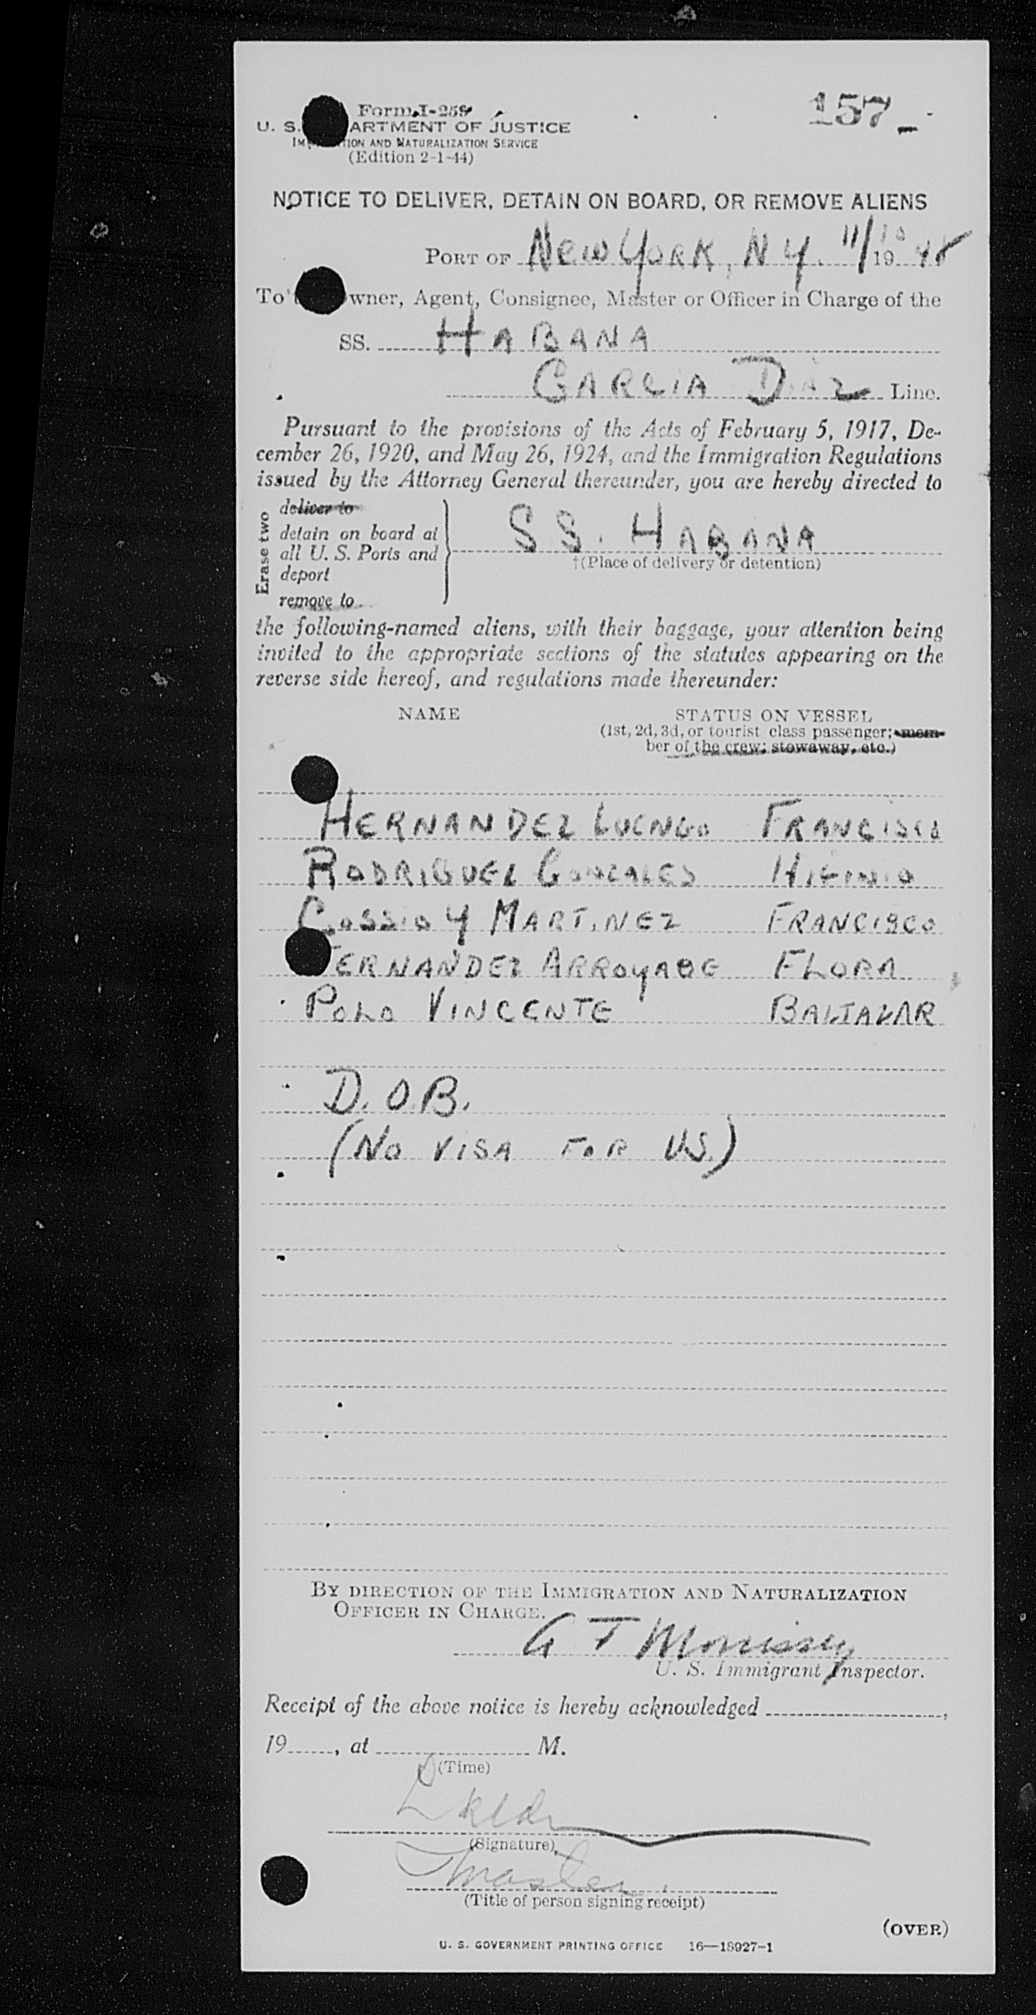 Form I-259
157
U. S. DEPARTMENT OF JUSTICE
IMMIGRATION AND NATURALIZATION SERVICE
(Edition 2-1-44)
NOTICE TO DELIVER, DETAIN ON BOARD, OR REMOVE ALIENS
PORT OF NEW YORK, N Y. 11/10 1948
To the Owner, Agent, Consignee, Master or Officer in Charge of the
SS. HABANA
GARCIA DIAZ Line.
Pursuant to the provisions of the Acts of February 5, 1917, De-
cember 26, 1920, and May 26, 1924, and the Immigration Regulations
issued by the Attorney General thereunder, you are hereby directed to
Erase two
deliver to
detain on board at
all U. S. Ports and
deport
remove to
SS. HABANA
†(Place of delivery or detention)
the following-named aliens, with their baggage, your attention being
invited to the appropriate sections of the statutes appearing on the
reverse side hereof, and regulations made thereunder:
NAME STATUS ON VESSEL
(1st, 2d, 3d, or tourist class passenger; mem-
ber of the crew; stowaway, etc.)
HERNANDEZ LUENGO FRANCISCO
RODRIGUEZ GONZALES HIGINIO
COSSIO Y MARTINEZ FRANCISCO
FERNANDEZ ARROYABE FLORA
POLO VINCENTE BALTAZAR
D.O.B.
(NO VISA FOR US.)
BY DIRECTION OF THE IMMIGRATION AND NATURALIZATION
OFFICER IN CHARGE.
G T Morrissey
U. S. Immigrant Inspector.
Receipt of the above notice is hereby acknowledged
19, at M.
(Time)
(Signature)
Master.
(Title of person signing receipt)
(OVER)
U. S. GOVERNMENT PRINTING OFFICE 16—18927-1